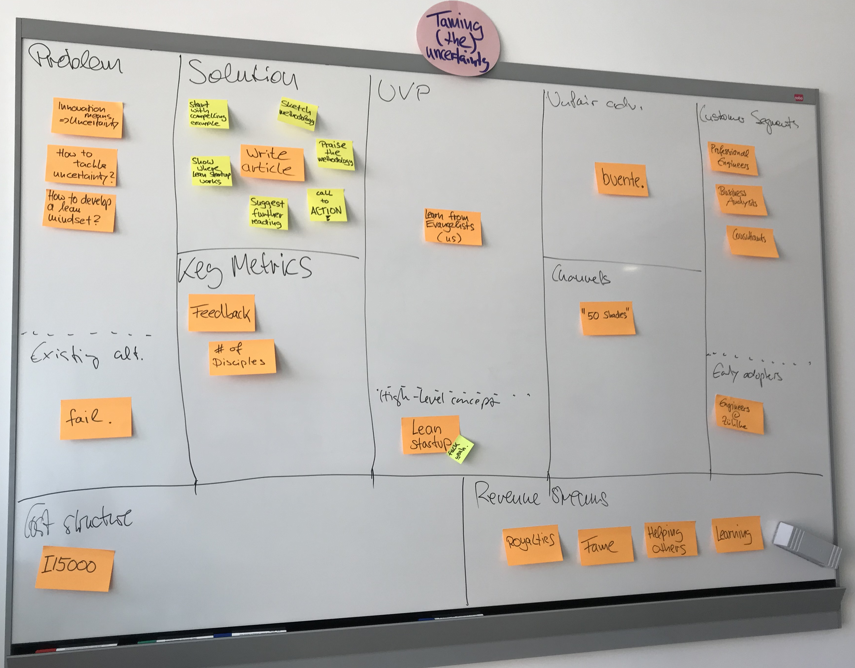 Taming
(the)
uncertainty
Problem
Innovation
means
=> Uncertainty
How to
tackle
uncertainty?
How to develop
a lean
mindset?
Existing alt.
fail.
Solution
Start
with
compelling
example
Sketch
methodology
Show
where
lean startup
works
Write
article
Praise
the
methodology
Suggest
further
reading
call
to
ACTION
Key Metrics
Feedback
# of
Disciples
UVP
Learn from
Evangelists
(us)
High-Level concept
Lean
Startup
Unfair adv.
buente.
Channels
"50 Shades"
Customer Segments
Professional
Engineers
Business
Analysts
Consultants
Early adopters
Engineers
@
Cost structure
I15000
Revenue Streams
Royalties
Fame
Helping
others
Learning